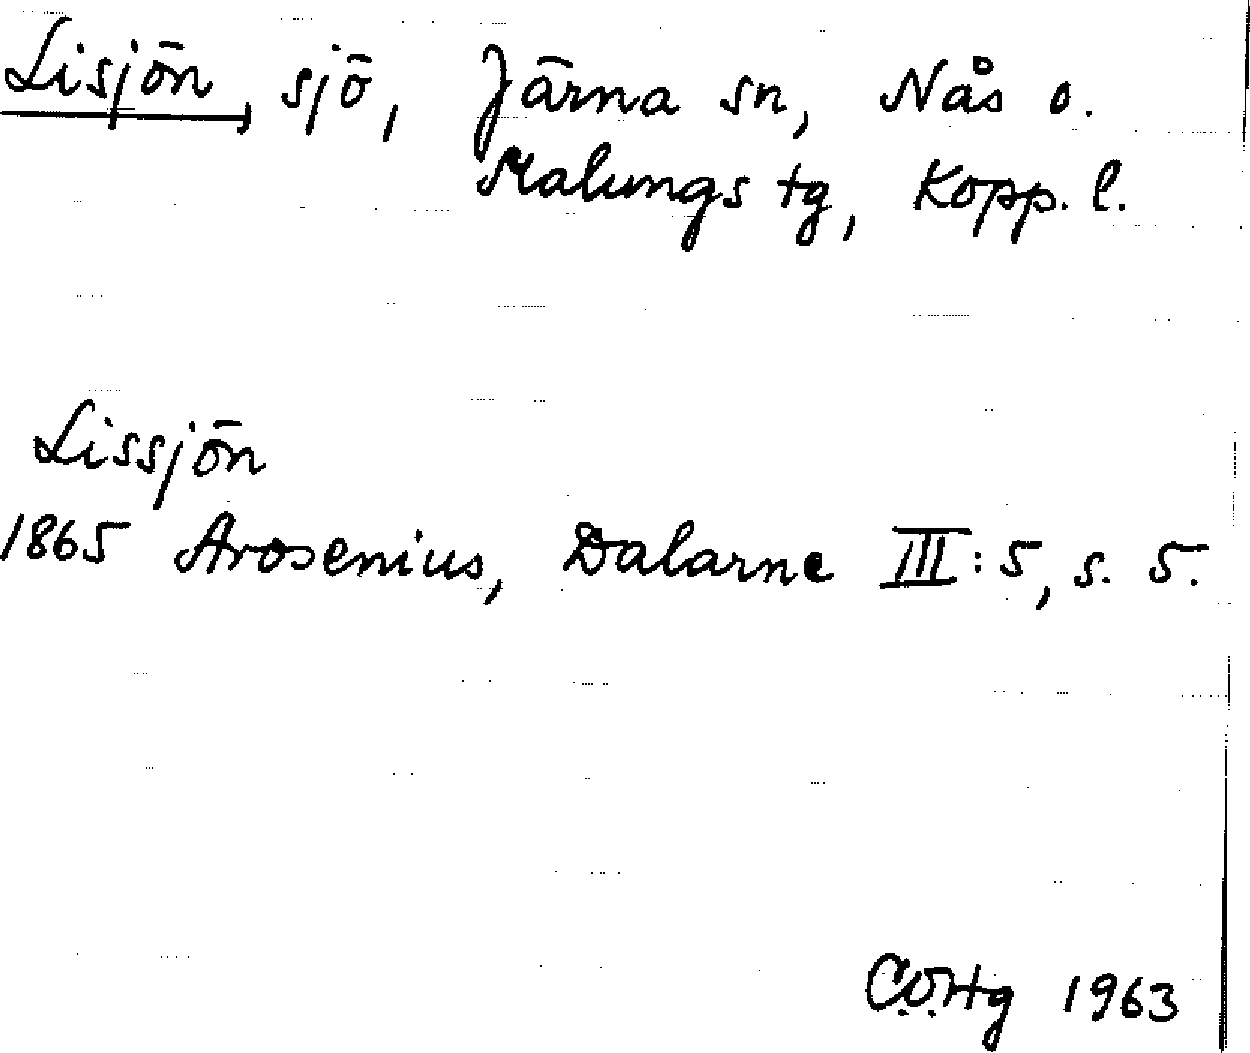 Lisjön, sjö, Järna sn, Nås o.
Malungs tg, Kopp. l.
Lissjön
1865 Arosenius, Dalarne III:5, s. 5.
1963